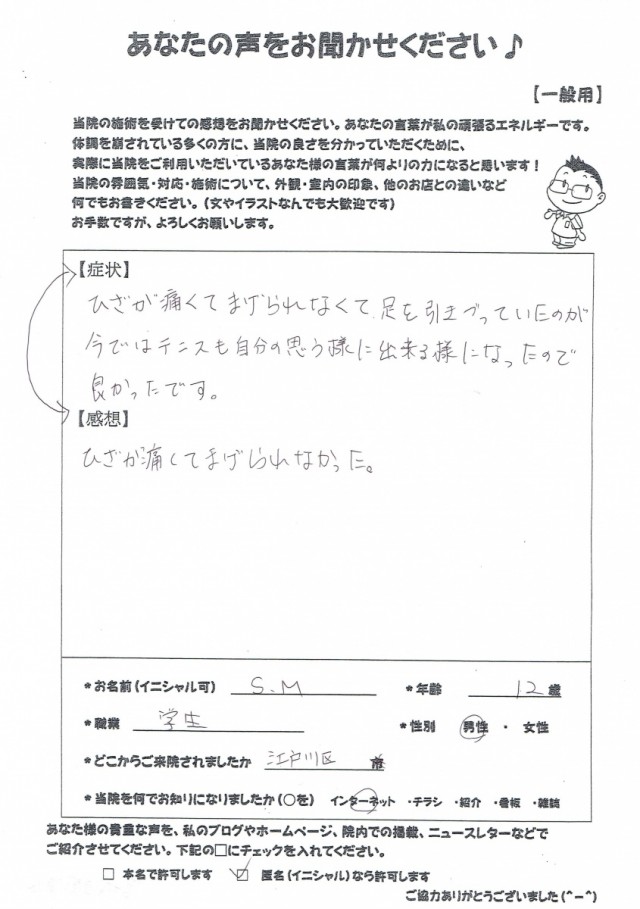 あなたの声をお聞かせください♪
【一般用】
当院の施術を受けての感想をお聞かせください。あなたの言葉が私の頑張るエネルギーです。
体調を崩されている多くの方に、当院の良さを分かっていただくために、
実際に当院をご利用いただいているあなた様の言葉が何よりの力になると思います！
当院の雰囲気・対応・施術について、外観・室内の印象、他のお店との違いなど
何でもお書きください。（文やイラストなんでも大歓迎です）
お手数ですが、よろしくお願いします。
【症状】
ひざが痛くてまげられなくて、足を引きづっていたのが
今ではテニスも自分の思う様に出来る様になったので
良かったです。
【感想】
ひざが痛くてまげられなかった。
*お名前（イニシャル可） S.M *年齢 12歳
*職業 学生 *性別 男性 ・ 女性
*どこからご来院されましたか 江戸川区
*当院を何でお知りになりましたか（○を） インターネット ・チラシ ・紹介 ・看板 ・雑誌
あなた様の貴重な声を、私のブログやホームページ、院内での掲載、ニュースレターなどで
ご紹介させてください。下記の□にチェックを入れてください。
□ 本名で許可します ☑ 匿名（イニシャル）なら許可します
ご協力ありがとうございました（^－^）